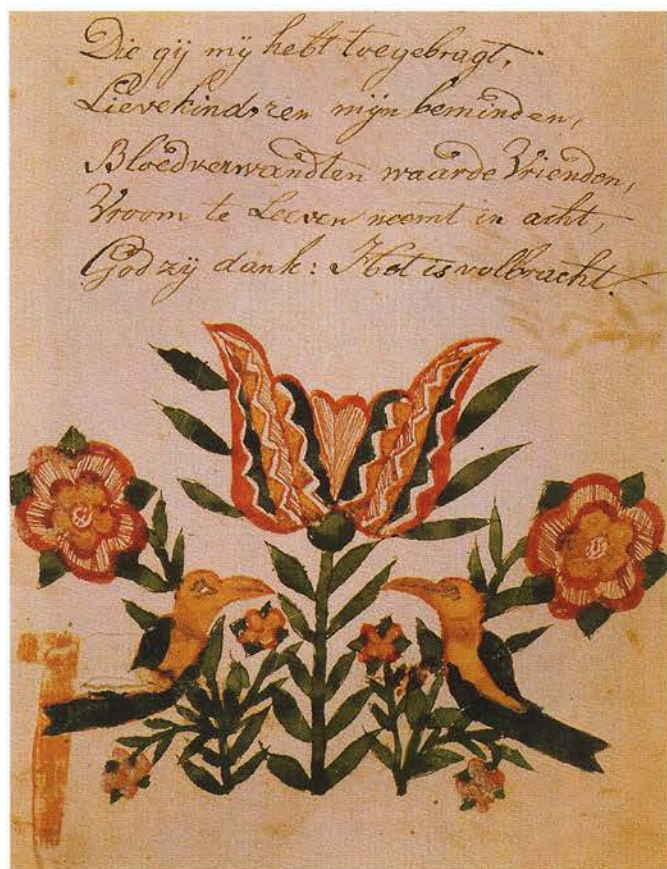 Die gij mij hebt toegebragt,
Lieve kinderen mijn beminden,
Bloedverwandten waarde Vrienden,
Vroom te Leeven neemt in acht,
God zij dank: Het is volbracht.